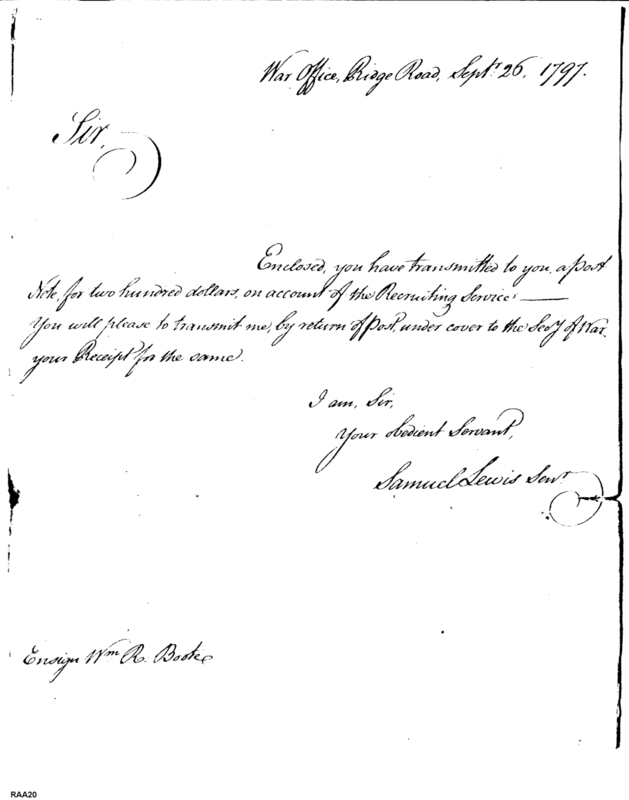 War Office, Ridge Road, Septr. 26. 1797.
Sir,
Enclosed, you have transmitted to you, a post
Note, for two hundred dollars, on account of the Recruiting Service.
You will please to transmit me, by return of Post, under cover to the Secy of War,
your Receipt for the same.
I am, Sir,
Your obedient Servant,
Samuel Lewis Senr.
Ensign Wm R. Boote
RAA20